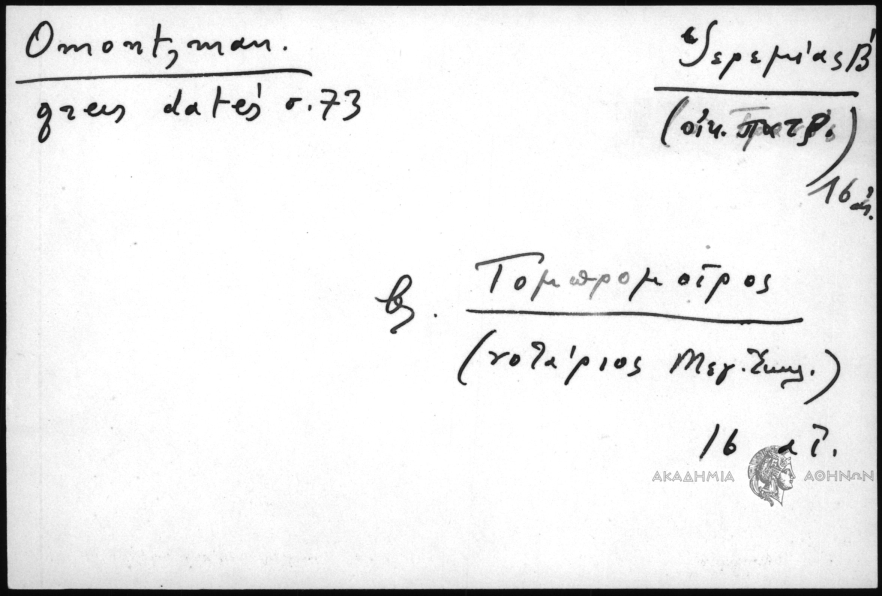 Omont, man.
grecs datés σ. 73
Ἱερεμίας Β΄
(οἰκ. πατρ.)
16 αἰ.
βλ. Τομπρομοῖρος
(νοτάριος Μεγ. Ἐκκλ.)
16 αἰ.
ΑΚΑΔΗΜΙΑ ΑΘΗΝΩΝ